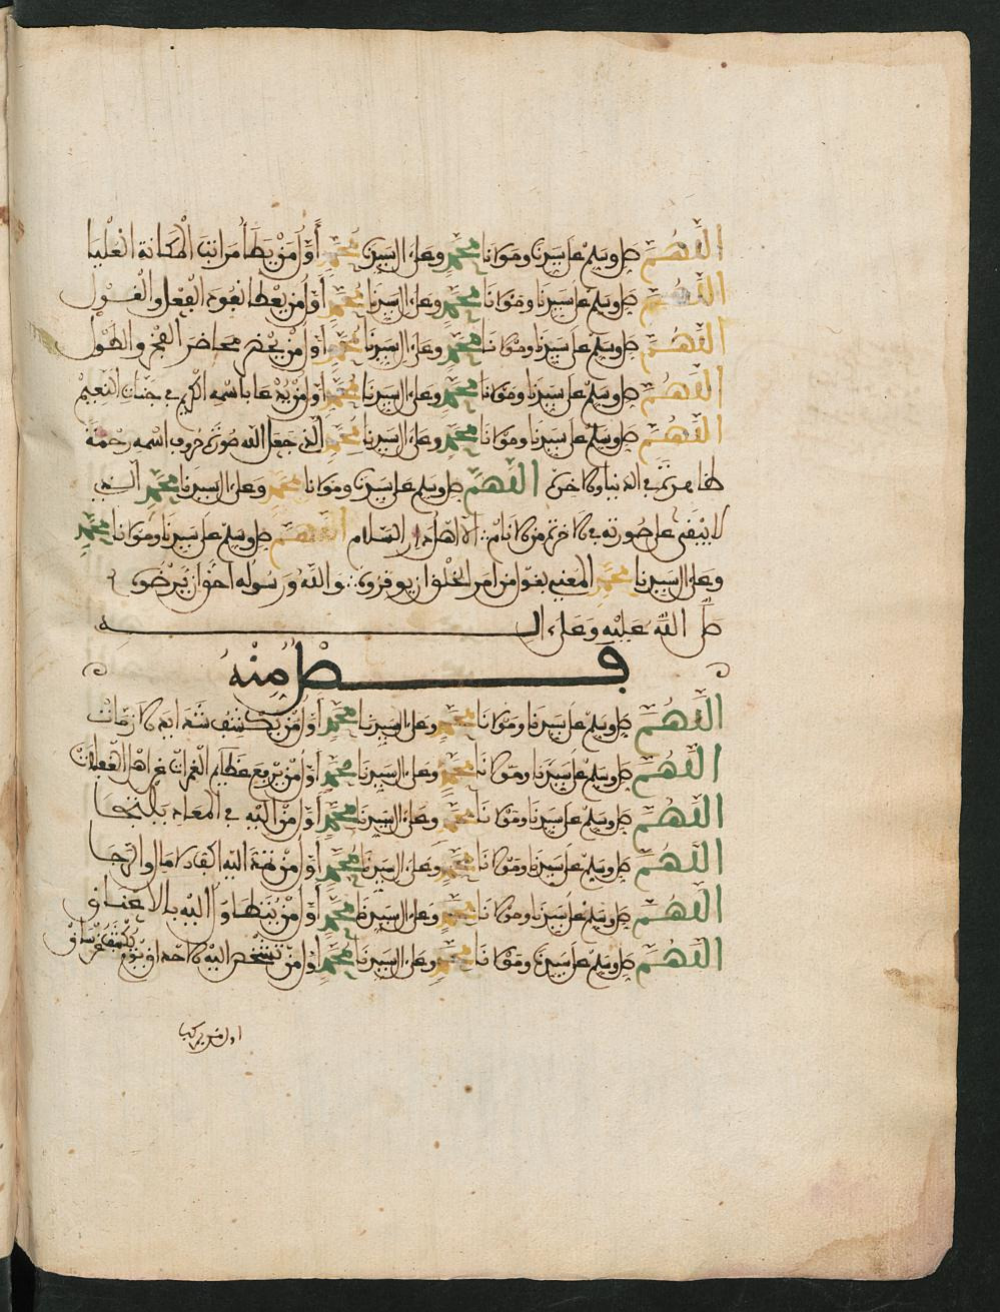 اللهم صل وسلم على سيدنا ومولانا محمد وعلى ال سيدنا محمد أول من يطأ مراتب المكانة العليا
اللهم صل وسلم على سيدنا ومولانا محمد وعلى ال سيدنا محمد أول من يعطا نفوذ الفعل والقول
اللهم صل وسلم على سيدنا ومولانا محمد وعلى ال سيدنا محمد أول من يحضر محاضر الفخر والطول
اللهم صل وسلم على سيدنا ومولانا محمد وعلى ال سيدنا محمد أول من يدعا باسمه الكريم في جنات النعيم
اللهم صل وسلم على سيدنا ومولانا محمد وعلى ال سيدنا محمد الذي جعل الله صورة حروف اسمه رحمة
ظاهرة في الدنيا والاخرة اللهم صل وسلم على سيدنا ومولانا محمد وعلى ال سيدنا محمد الذي
لا يبقى على صورته في الاخرة من الانام الا اهل دار السلام اللهم صل وسلم على سيدنا ومولانا محمد
وعلى ال سيدنا محمد المعني بقول من امر الخلق ان يوقروه والله ورسوله احق ان يرضوه
صل الله عليه وعلى اله
فصل منه
اللهم صل وسلم على سيدنا ومولانا محمد وعلى ال سيدنا محمد أول من يكشف شدايد الازمات
اللهم صل وسلم على سيدنا ومولانا محمد وعلى ال سيدنا محمد أول من يرفع عظايم الغمرات عن اهل
اللهم صل وسلم على سيدنا ومولانا محمد وعلى ال سيدنا محمد أول من اليه في المعاد يلتجا
اللهم صل وسلم على سيدنا ومولانا محمد وعلى ال سيدنا محمد أول من تمتد اليه اكف الامال والرجا
اللهم صل وسلم على سيدنا ومولانا محمد وعلى ال سيدنا محمد أول من يتطاول اليه بالاعناق
اللهم صل وسلم على سيدنا ومولانا محمد وعلى ال سيدنا محمد أول من تشخص اليه الاحداق يوم يكشف عن ساق
اول من يركب